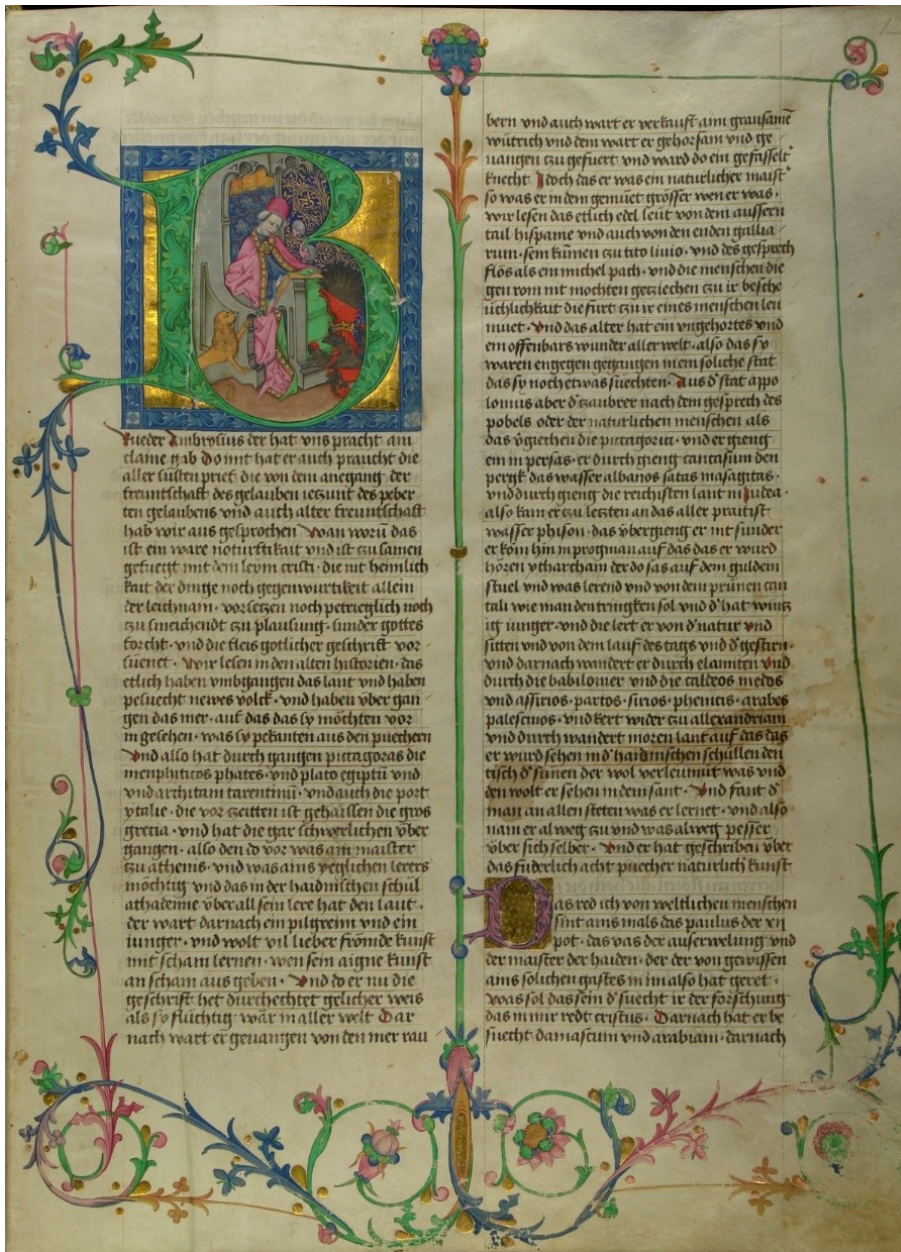 B
rueder Ambrosius der hat vns pracht ain
claine gab Do mit hat er auch praucht die
aller süssten prief die von dem anegang der
freuntschaft des gelauben ieczunt des peber
ten gelaubens vnd auch alter freuntschaft
hab wir aus gesprochen Wan worū das
ist ein ware noturftikait vnd ist czu samen
gefuegt mit dem leym cristi · die nit heimlich
kait der dinge noch gegenwurtikeit allein
der leichnam · vor seczen noch petrieglich noch
czu smeichendt czu plausung · sunder gottes
forcht · vnd die fleis gotlicher geschrift vor
suenet · Wir lesen in den alten historien · das
etlich haben vmbgangen das lant vnd haben
pesuecht newes volck · vnd haben vber gan
gen das mer · auf das das sy möchten vor
in gesehen · was sy pekanten aus den puechern
Vnd also hat durch gangen pictagoras die
menphiticos phates · vnd plato egiptū vnd
vnd architam tarentinū · vnd auch die port
ytalie · die vor zeitten ist gehaissen die gros
grecia · vnd hat die gar schwerlichen vber
gangen · also den do vor was ain maister
czu athenis · vnd was ains yeglichen lerers
möchtig vnd das in der haidnischen schül
athademie vber all sein lere hat den laut ·
der wart darnach ein pilgreim vnd ein
iunger · vnd wolt vil lieber frömde kunst
mit scham lernen · wen sein aigne kunst
an scham aus geben · Vnd do er nu die
geschrift het durchechtet gelicher weis
als so fluchtig wär in aller welt Dar
nach wart er geuangen von den mer rau
bern vnd auch wart er verkauft aim grausamē
wütrich vnd dem wart er gehorsam vnd ge
uangen czu gefuert vnd ward do ein gefässelt
knecht Idoch das er was ein naturlicher maist
so was er in dem gemüet grösser wen er was ·
wir lesen das etlich edel leut von dem aussern
tail hispanie vnd auch von den enden gallia
rum · sein kümen czu tito liuio · vnd des gesprech
flös als ein michel pach · vnd die menschen die
gen rom nit mochten gecziechen czu ir besche
ulichkait die fürt czu ir eines menschen leu
muet · Vnd das alter hat ein vngehortes vnd
ein offenbars wunder aller welt · also das sy
waren engegen gegangen in ein soliche stat
das sy noch etwas suechten · Aus d' stat appo
lonius aber d' czaubrer nach dem gesprech des
pobels oder der naturlichen menschen als
das vgiehen die pictagorici · vnd er gieng
ein in persas · er durch gieng caucasum den
pergk das wasser albanos satas masagitas ·
vnd durch gieng die reichisten laut in Judea ·
also kam er czu leczten an das aller praitist
wasser phison · das vbergieng er mit sunder
er kom hin in progman auf das das er wurd
hören ytharcham der do sas auf dem guldein
stuel vnd was lerend vnd von dem prünen tan
tali wie man den tringken sol vnd d' hat winz
ig iunger · vnd die lert er von d' natur vnd
sitten vnd von dem lauf des tags vnd d' gestirn ·
vnd darnach wandert er durch elamiten vnd
durch die babilonier vnd die caldeos medos
vnd assirios · partos · sirios · phenicis · arabes
palestinos · vnd kert wider czu allexandriam
vnd durch wandert moren lant auf das das
er wurd sehen in d' haidnischen schullen den
tisch d' sunnen der wol verleumüt was vnd
den wolt er sehen in dem sant · Vnd fant d'
man an allen steten was er lernet · vnd also
nam er alweg czu vnd was alweg pesser
vber sich selber · Vnd er hat geschriben vber
das füderlich acht puecher naturlich kunst
Das red ich von weltlichen menschen
sint ains mals das paulus der xii
pot · das vas der auserwelung vnd
der maister der haiden · der der von gewissen
ains solichen gastes in im also hat geret ·
was sol das sein d' suecht ir der forschung
das in mir redt cristus · Darnach hat er be
suecht damascum vnd arabiam · darnach